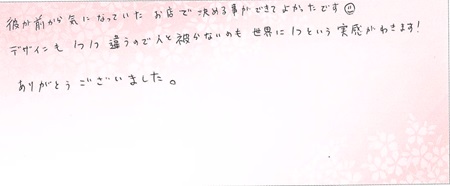 彼が前から気になっていた お店で決める事ができてよかったです☺
デザインも1つ1つ違うので人と被らないのも世界に1つという実感がわきます!
ありがとうございました。